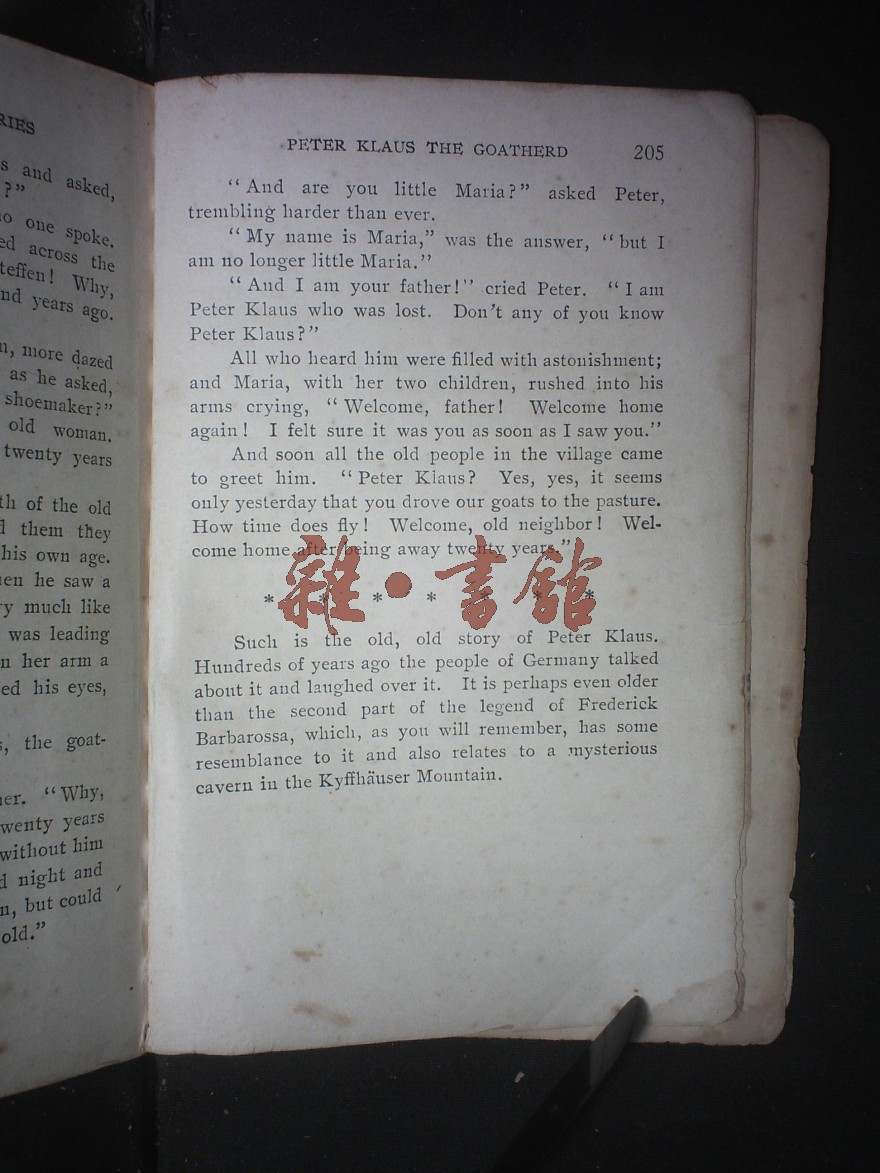 RIES
s and asked,
?”
no one spoke.
ed across the
teffen! Why,
nd years ago.
n, more dazed
as he asked,
shoemaker?”
old woman.
twenty years
th of the old
d them they
his own age.
en he saw a
ry much like
was leading
n her arm a
ed his eyes,
s, the goat-
er. “Why,
wenty years
without him
d night and
n, but could
old.”
PETER KLAUS THE GOATHERD 205
“And are you little Maria?” asked Peter,
trembling harder than ever.
“My name is Maria,” was the answer, “but I
am no longer little Maria.”
“And I am your father!” cried Peter. “I am
Peter Klaus who was lost. Don’t any of you know
Peter Klaus?”
All who heard him were filled with astonishment;
and Maria, with her two children, rushed into his
arms crying, “Welcome, father! Welcome home
again! I felt sure it was you as soon as I saw you.”
And soon all the old people in the village came
to greet him. “Peter Klaus? Yes, yes, it seems
only yesterday that you drove our goats to the pasture.
How time does fly! Welcome, old neighbor! Wel-
come home after being away twenty years.”
* * * * * * *
雜·書館
Such is the old, old story of Peter Klaus.
Hundreds of years ago the people of Germany talked
about it and laughed over it. It is perhaps even older
than the second part of the legend of Frederick
Barbarossa, which, as you will remember, has some
resemblance to it and also relates to a mysterious
cavern in the Kyffhäuser Mountain.